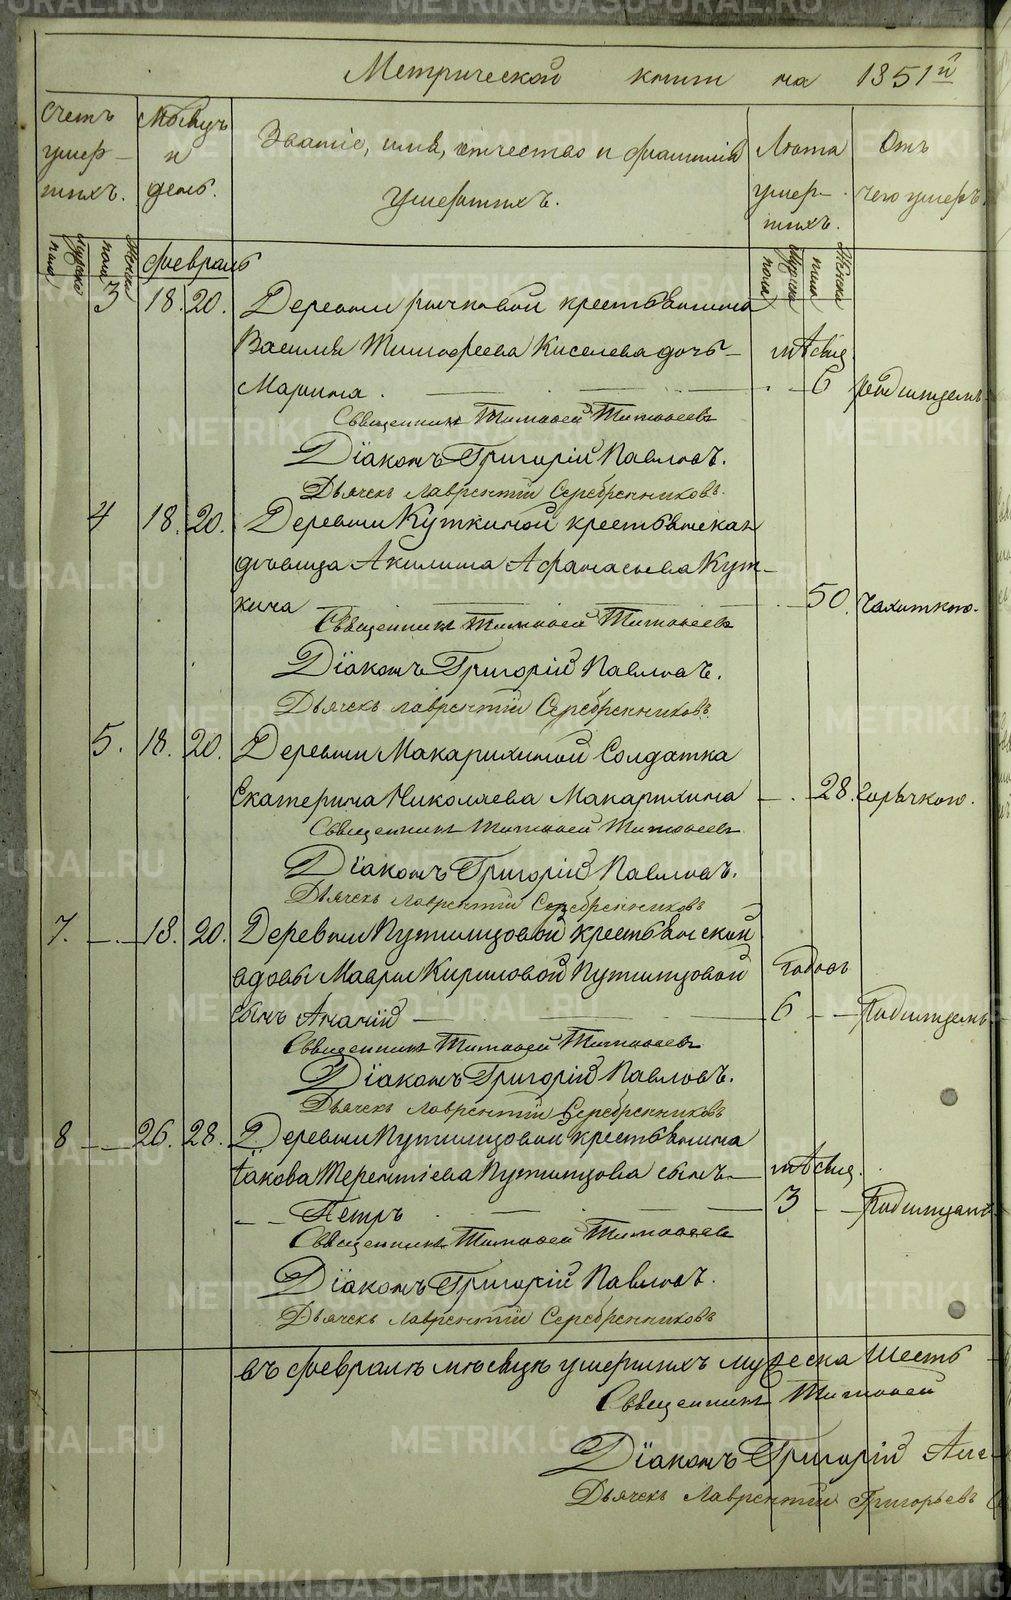 Метрической книги на 1851й
Счетъ умерших.
Мѣсяцъ и день.
Званіе, имя, отчество и фамилія умершихъ.
Лѣта умершихъ.
Отъ чего умеръ.
Мужска пола
Женска пола
Февраль
Мужска пола
Женска пола
3 18. 20. Деревни рычковой крестьянина
Василія Тимофеева Киселева дочь мѣсяц.
Марина. 6 родимцемъ
Священникъ Тимофей Тимофеевъ
Діаконъ Григорій Павловъ.
Дьячекъ Лаврентій Серебренниковъ.
4 18. 20. Деревни Куткиной крестьянская
дѣвица Акилина Афанасьева Кут-
кина 50. Чахоткою.
Священникъ Тимофей Тимофеевъ
Діаконъ Григорій Павловъ.
Дьячекъ Лаврентій Серебренниковъ.
5. 18. 20. Деревни Макарихиной Солдатка
Екатерина Николаева Макарихина 28. Горячкою.
Священникъ Тимофей Тимофеевъ
Діаконъ Григорій Павловъ.
Дьячекъ Лаврентій Серебренниковъ
7. 18. 20. Деревни Путилцовой крестьянской
вдовы Мавры Кириловой Путилцовой Годовъ
сынъ Ананій 6 Родимцемъ
Священникъ Тимофей Тимофеевъ
Діаконъ Григорій Павловъ.
Дьячекъ Лаврентій Серебренниковъ
8 26. 28. Деревни Путилцовой крестьянина
Іакова Терентіева Путилцова сынъ мѣсяц.
Петръ 3 Родимцемъ
Священникъ Тимофей Тимофеевъ
Діаконъ Григорій Павловъ.
Дьячекъ Лаврентій Серебренниковъ
въ февралѣ мѣсяцѣ умершихъ мужеска шесть
Священникъ Тимофей
Діаконъ Григорій
Дьячекъ Лаврентій Григорьевъ
METRIKI.GASO-URAL.RU